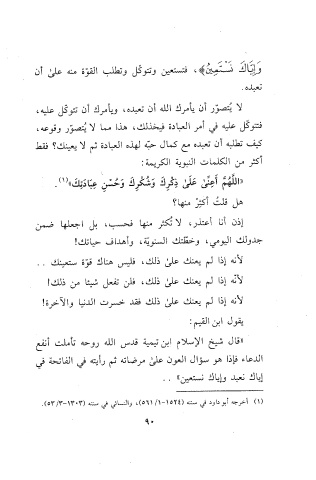 وَإِيَّاكَ نَسْتَعِينُ﴾، فتستعين وتتوكّل وتطلب القوّة منه علىٰ أن
تعبده.
لا يُتصوّر أن يأمرك الله أن تعبده، ويأمرك أن تتوكّل عليه،
فتتوكّل عليه في أمر العبادة فيخذلك، هذا مما لا يُتصوّر وقوعه،
كيف تطلبه أن تعبده مع كمال حبّه لهذه العبادة ثم لا يعينك؟ فقط
أكثر من الكلمات النبوية الكريمة:
«اللَّهُمَّ أَعِنِّي عَلَىٰ ذِكْرِكَ وَشُكْرِكَ وَحُسْنِ عِبَادَتِكَ»(١).
هل قلتُ أكثِرْ منها؟
إذن أنا أعتذر، لا تُكثر منها فحسب، بل اجعلها ضمن
جدولك اليومي، وخطّتك السنويّة، وأهداف حياتك!
لأنه إذا لم يعنك علىٰ ذلك، فليس هناك قوّة ستعينك ..
لأنّه إذا لم يعنك علىٰ ذلك، فلن تفعل شيئا من ذلك!
لأنه إذا لم يعنك علىٰ ذلك فقد خسرت الدنيا والآخرة!
يقول ابن القيم:
«قال شيخ الإسلام ابن تيمية قدس الله روحه تأملت أنفع
الدعاء فإذا هو سؤال العون علىٰ مرضاته ثم رأيته في الفاتحة في
إياك نعبد وإياك نستعين» ..
(١) أخرجه أبو داود في سننه (١٥٢٤-٥٦١/١)، والنسائي في سننه (١٣٠٣-٥٣/٣).
٩٠